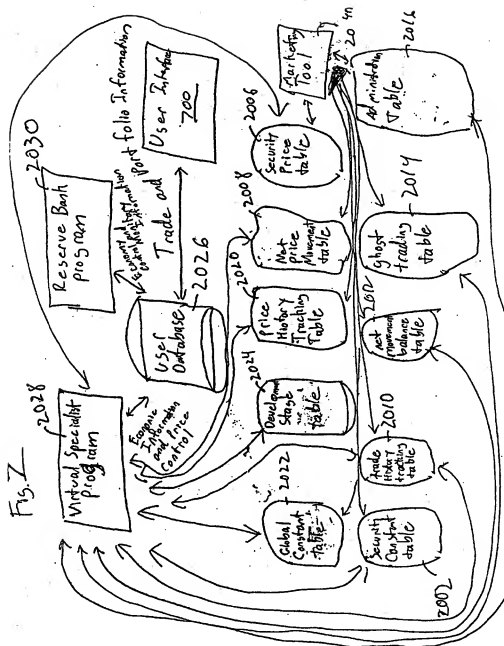 Fig. 7
Virtual Specialist
Program
2028
Reserve Bank
program
2030
Economic
Information
and Price
Control
User
Database
2026
Economy and
Information
Trade and
Portfolio Information
User Interface
700
Global
Constant
table
2022
Development
Stage
table
2024
Price
History
Tracking
Table
2020
Net
price
Movement
table
2008
Security
Price
table
2006
Marketing
Tool
Security
Constant
table
2002
trade
History
tracking
table
2010
net
movement
balance
table
2012
Ghost
trading
table
2014
Administration
Table
2016